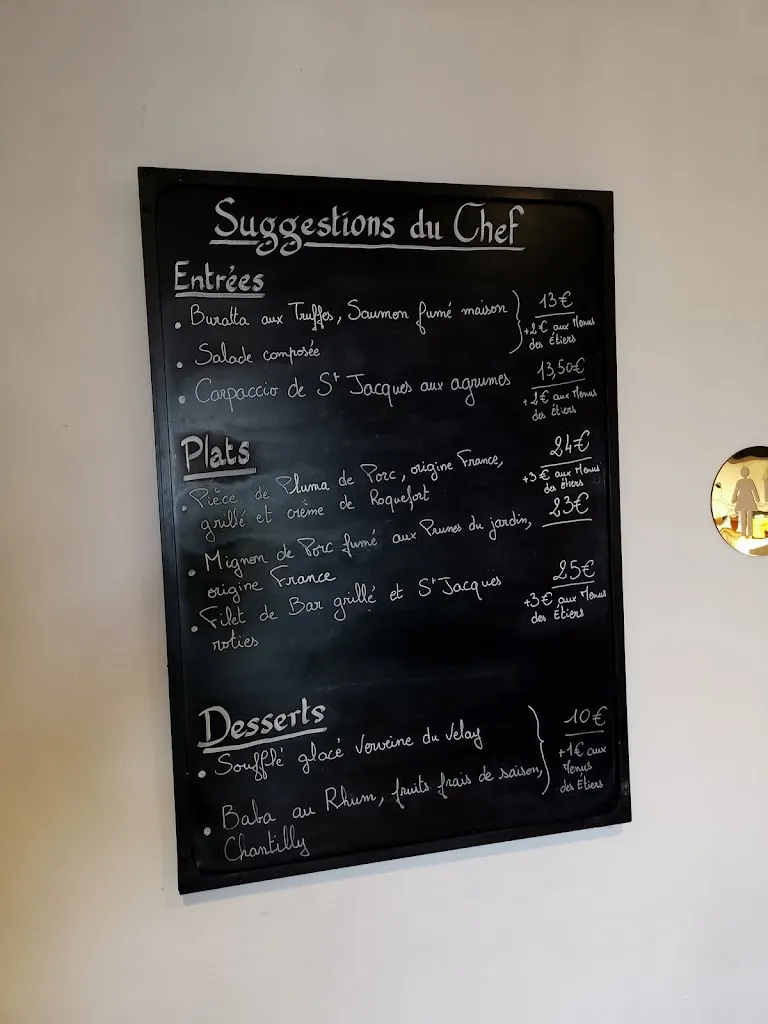 Suggestions du Chef
Entrées
• Buratta aux Truffes, Saumon fumé maison
• Salade composée
13€
+2€ aux Menus
des Étiers
• Carpaccio de St Jacques aux agrumes
13,50€
+2€ aux Menus
des Étiers
Plats
• Pièce de Pluma de Porc, origine France,
grillé et crème de Roquefort
24€
+3€ aux Menus
des étiers
• Mignon de Porc fumé aux Prunes du jardin,
origine France
23€
• Filet de Bar grillé et St Jacques
roties
25€
+3€ aux Menus
des Étiers
Desserts
• Soufflé glacé Verveine du Velay
• Baba au Rhum, fruits frais de saison,
Chantilly
10€
+1€ aux
Menus
des Étiers